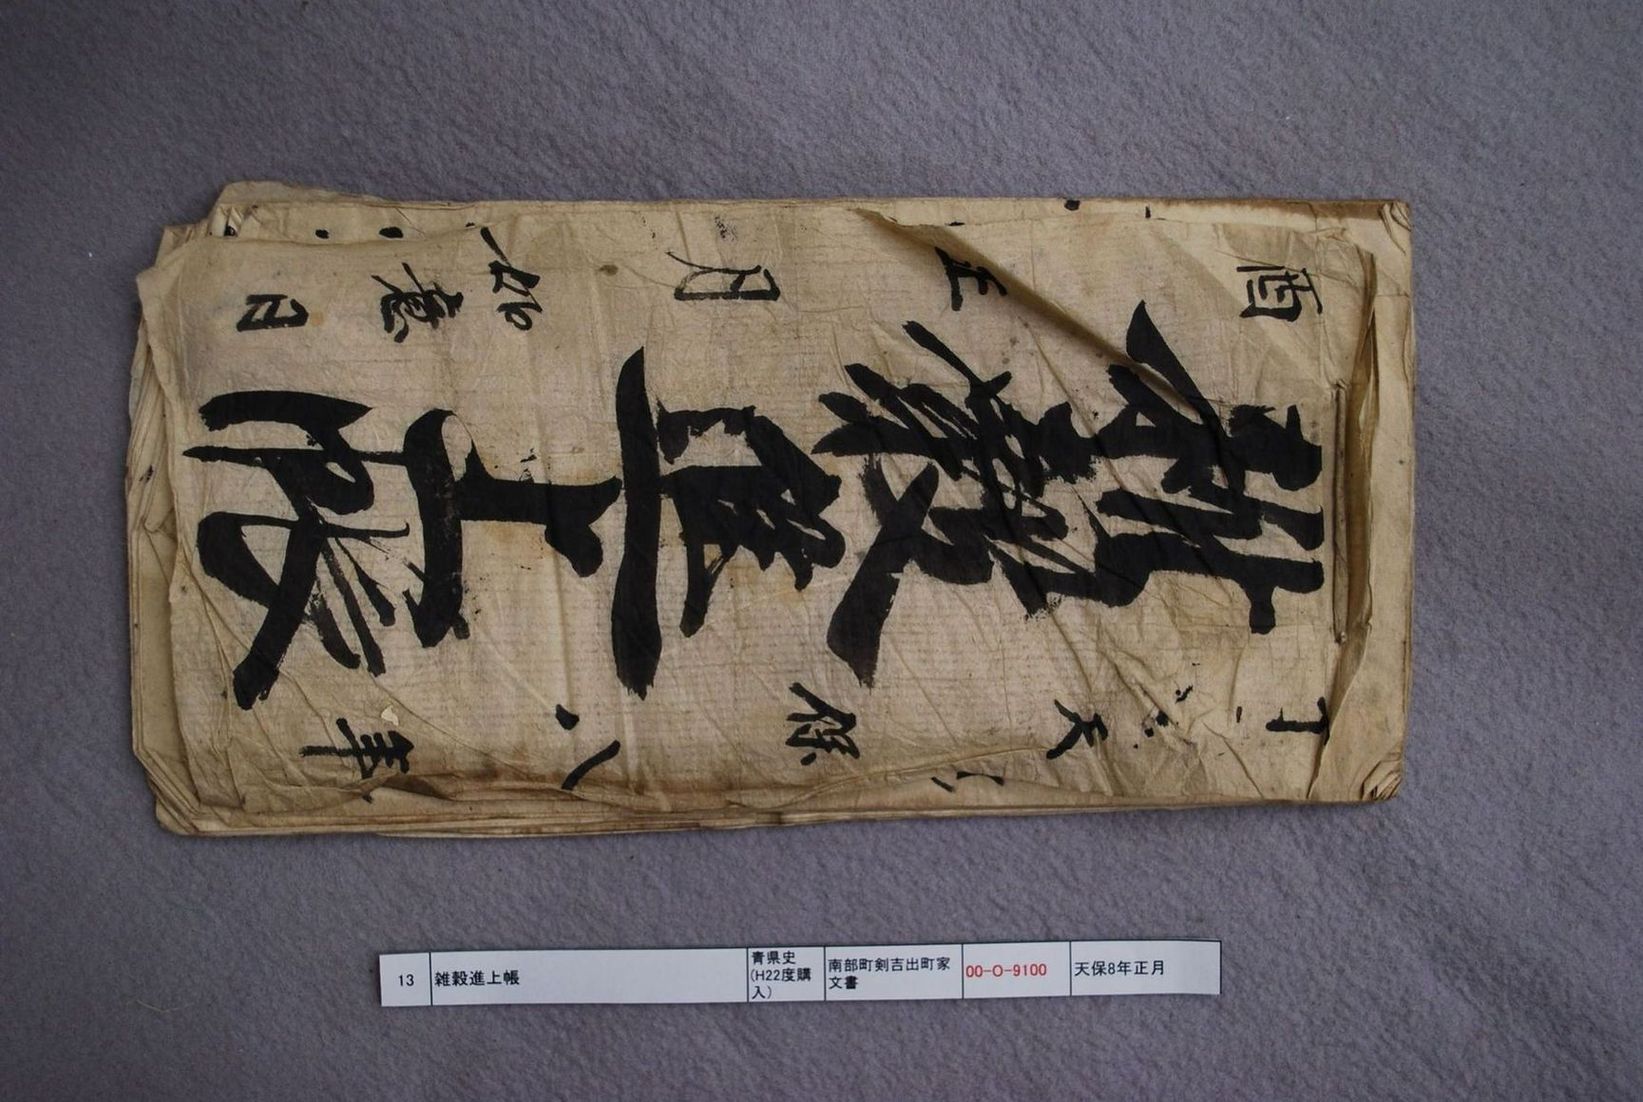 丁
天保八年
雑穀進上帳
酉
正月如意日
13
雑穀進上帳
青県史
(H22度購
入)
南部町剣吉出町家
文書
00-O-9100
天保8年正月